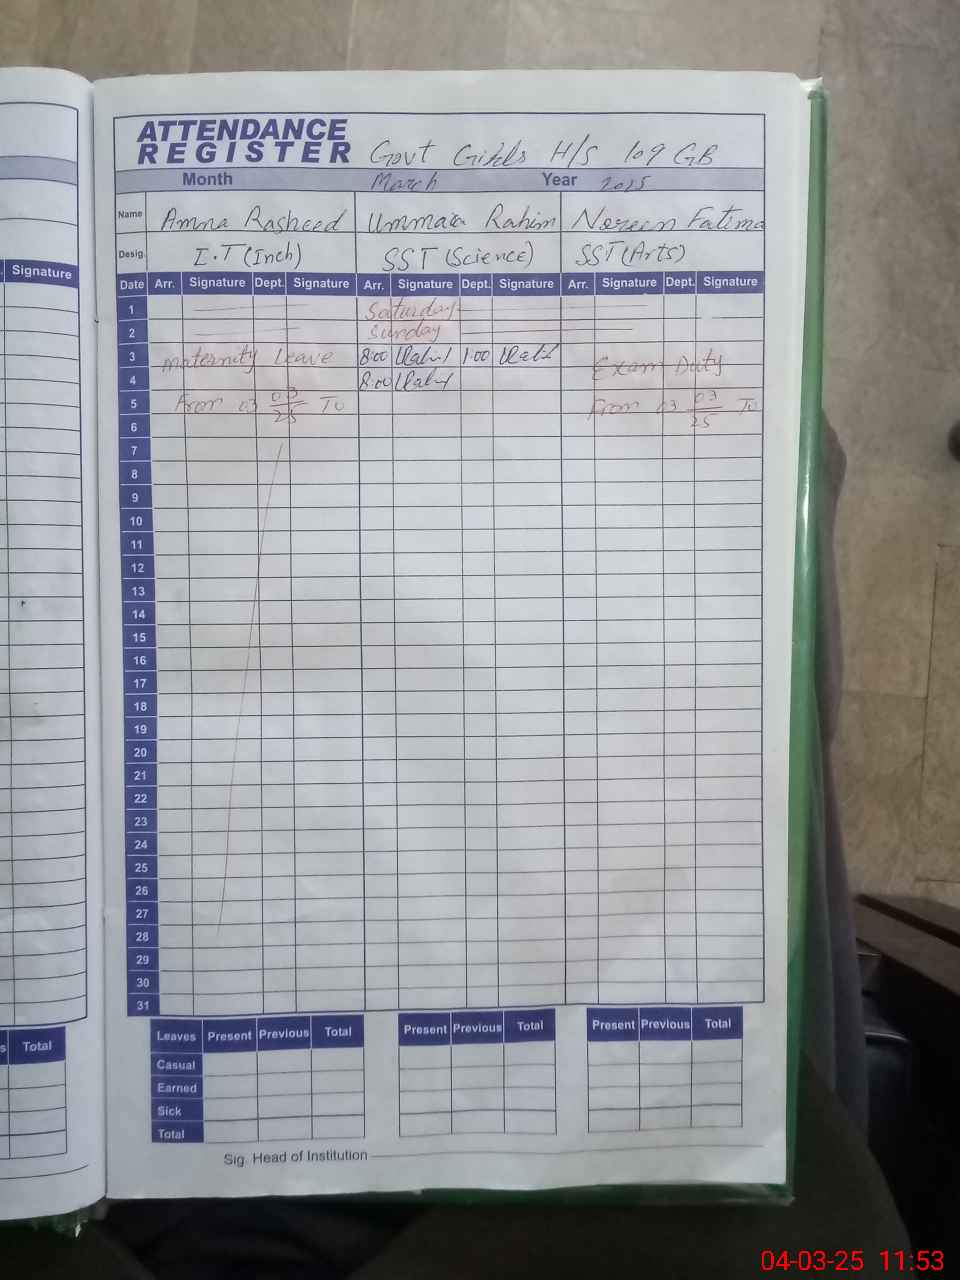 ATTENDANCE
REGISTER Govt Girls H/S 109 GB
Month March Year 2025
Name Amna Rasheed Ummara Rahim Noreen Fatima
Desig. I.T (Inch) SST (Science) SST (Arts)
Signature
Date Arr. Signature Dept. Signature Arr. Signature Dept. Signature Arr. Signature Dept. Signature
1 Saturday
2 Sunday
3 Maternity Leave 8:00 1:00 Exam Duty
4 8:00
5 From 03 03/25 To From 03 03/25 To
6
7
8
9
10
11
12
13
14
15
16
17
18
19
20
21
22
23
24
25
26
27
28
29
30
31
s Total
Leaves Present Previous Total Present Previous Total Present Previous Total
Casual
Earned
Sick
Total
Sig. Head of Institution
04-03-25 11:53